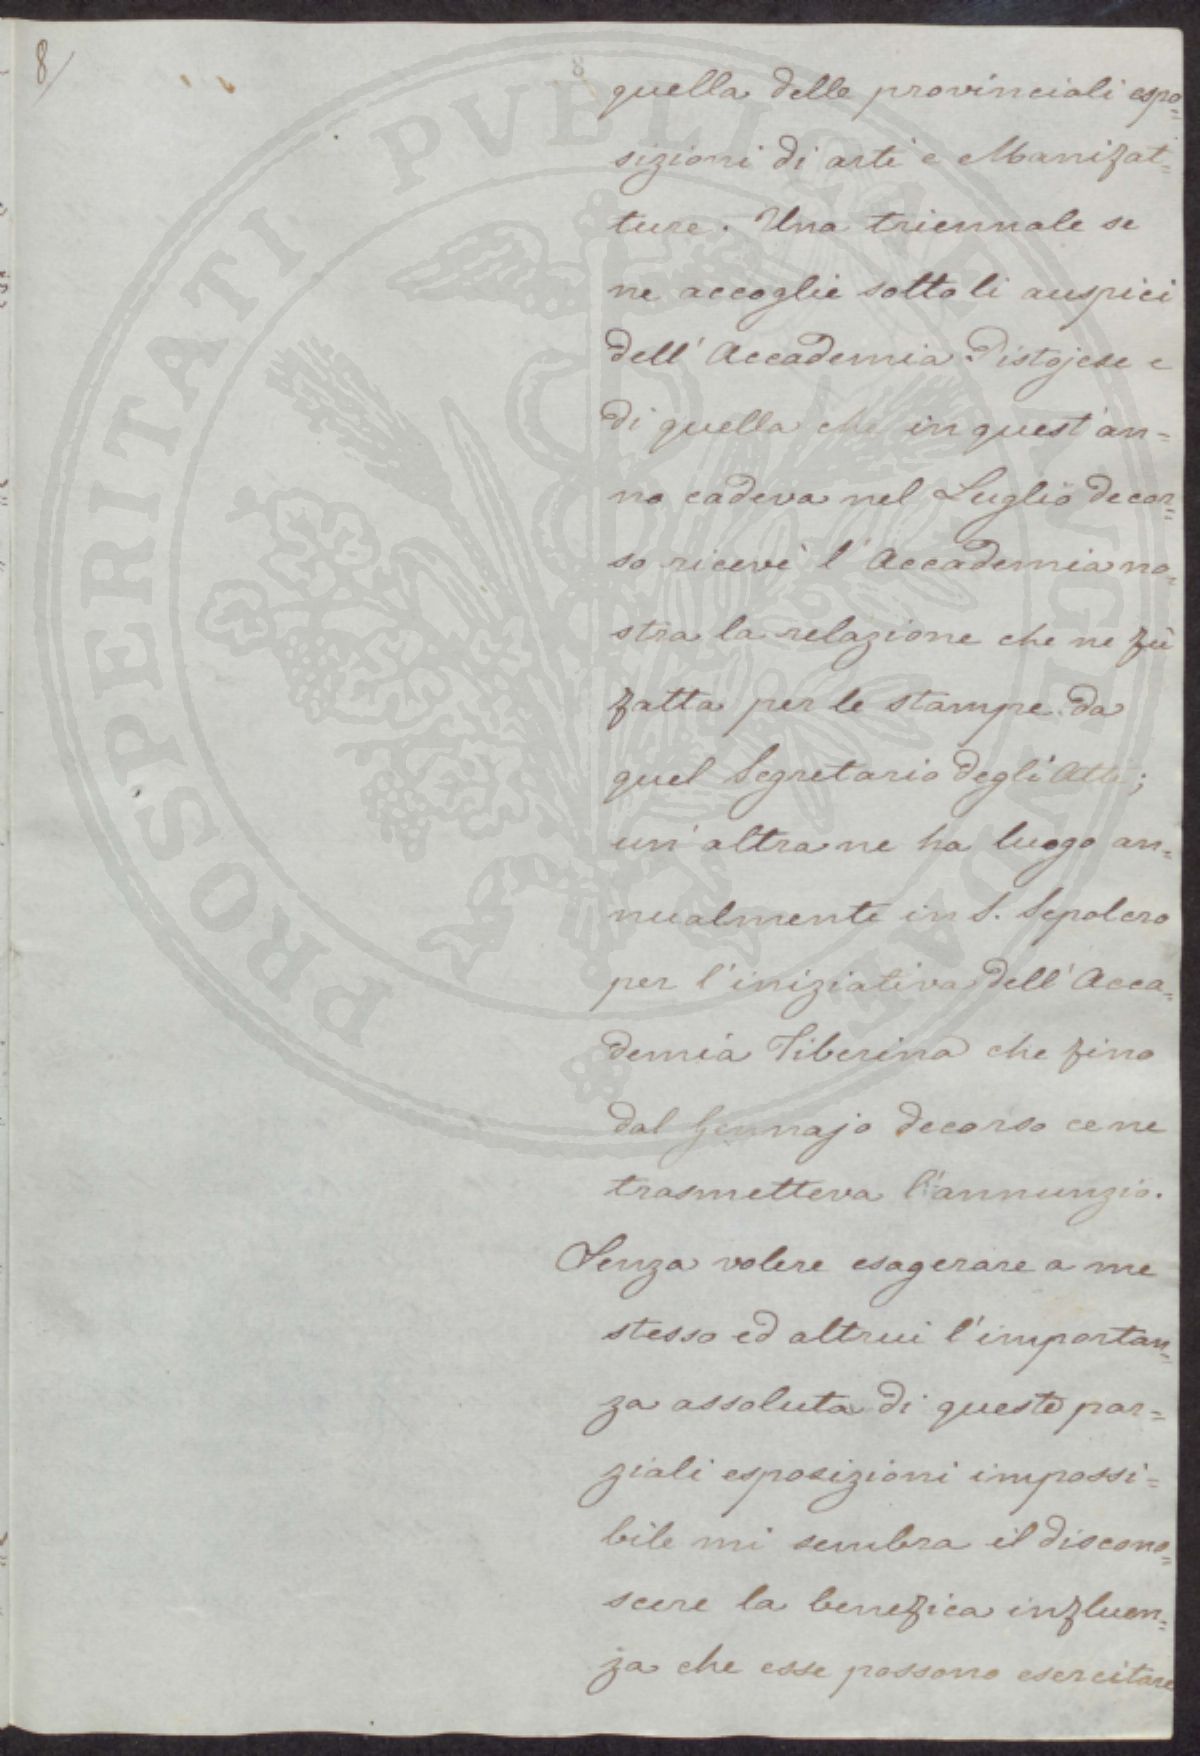 8/
8
quella delle provinciali espo=
sizioni di arti e Manifat=
ture. Una triennale se
ne accoglie sotto li auspici
dell' Accademia Pistojese e
di quella che in quest'an=
no cadeva nel Luglio decor=
so ricevè l'Accademia no=
stra la relazione che ne fù
fatta per le stampe da
quel Segretario degli Atti;
un'altra ne ha luogo an=
nualmente in S. Sepolcro
per l'iniziativa dell'Acca=
demia Tiberina che fino
dal Gennajo decorso ce ne
trasmetteva l'annunzio.
Senza volere esagerare a me
stesso ed altrui l'importan=
za assoluta di queste par=
ziali esposizioni impossi=
bile mi sembra il discono=
scere la benefica influen=
za che esse possono esercitare
PROSPERITATI PVBLICAE AVGENDAE